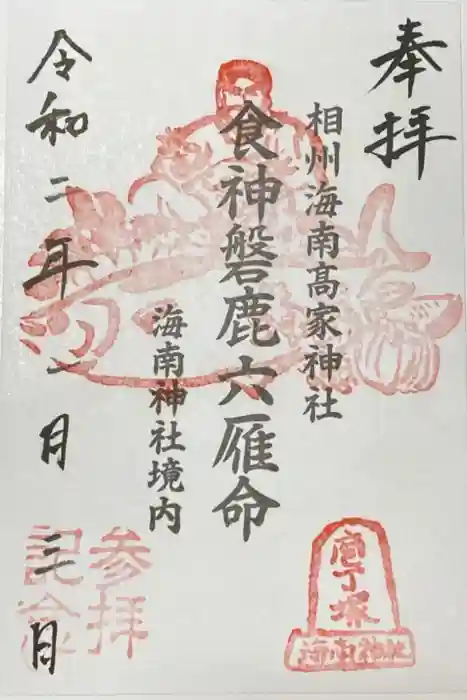 奉拝
相州海南高家神社
食神磐鹿六雁命
海南神社境内
令和二年一月三日
庖丁塚
海南神社
参拝
記念